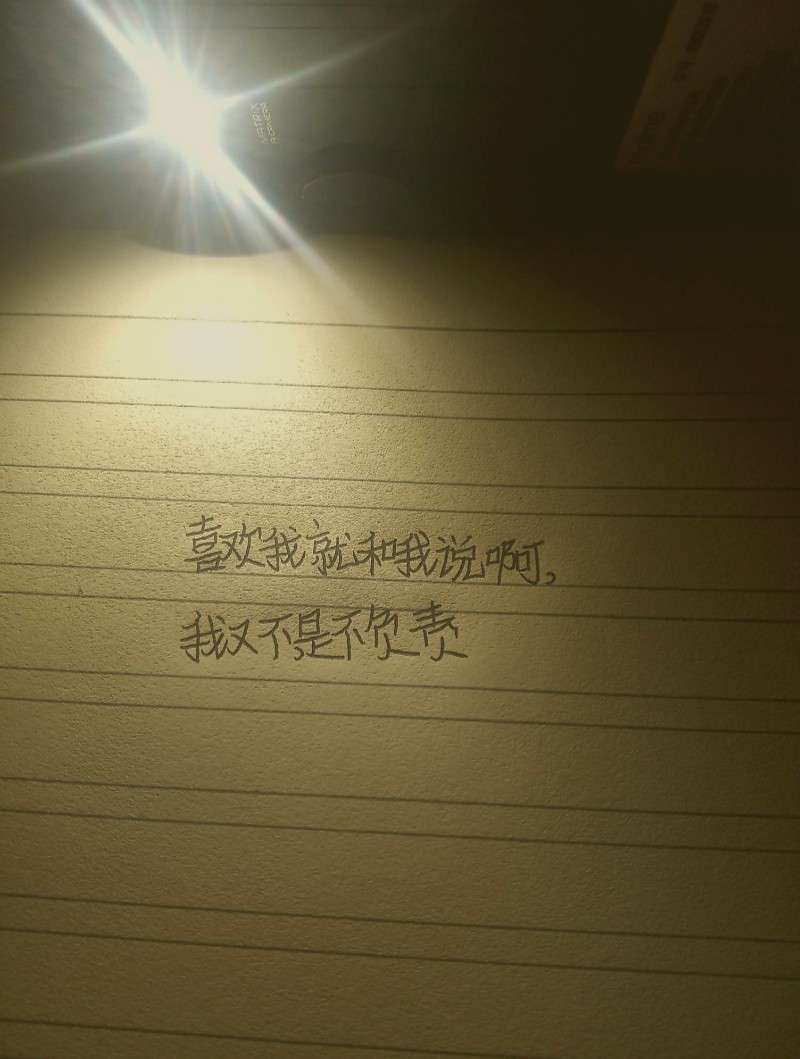 MATRIX
喜欢我就和我说啊,
我又不是不负责